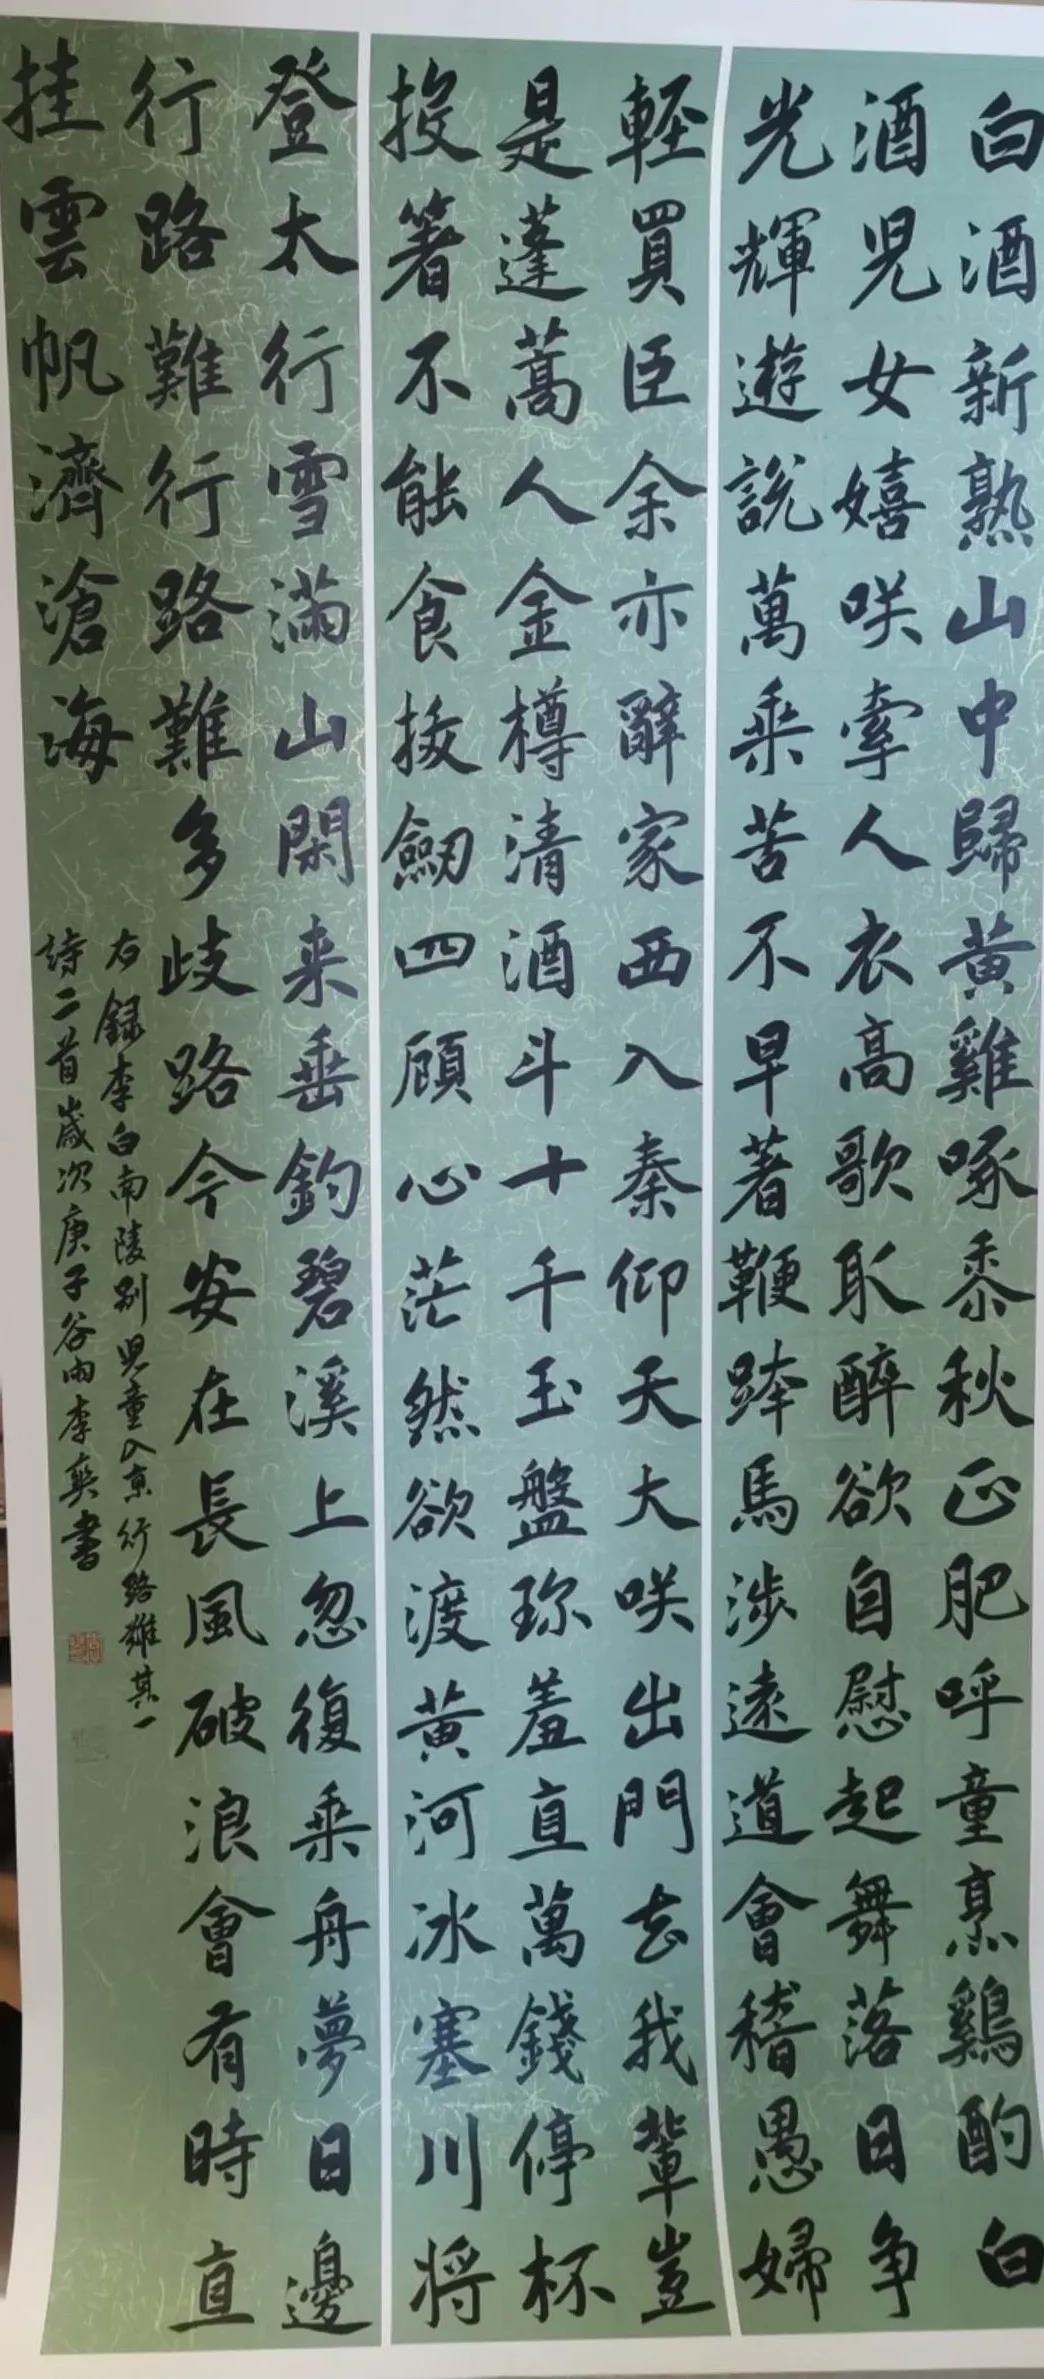 白酒新熟山中歸黃雞啄黍秋正肥呼童烹鷄酌白
酒児女嬉咲牽人衣高歌取醉欲自慰起舞落日争
光輝遊説萬乗苦不早著鞭跨馬渉遠道會稽愚婦
輕買臣余亦辭家西入秦仰天大咲出門去我輩豈
是蓬蒿人金樽清酒斗十千玉盤珎羞直萬錢停杯
投箸不能食拔劔四顧心茫然欲渡黄河冰塞川将
登太行雪滿山閑来垂釣碧溪上忽復乗舟夢日邊
行路難行路難多歧路今安在長風破浪會有時直
挂雲帆濟滄海
右録李白南陵别児童入京行路難其一
詩二首歲次庚子谷雨李奕書